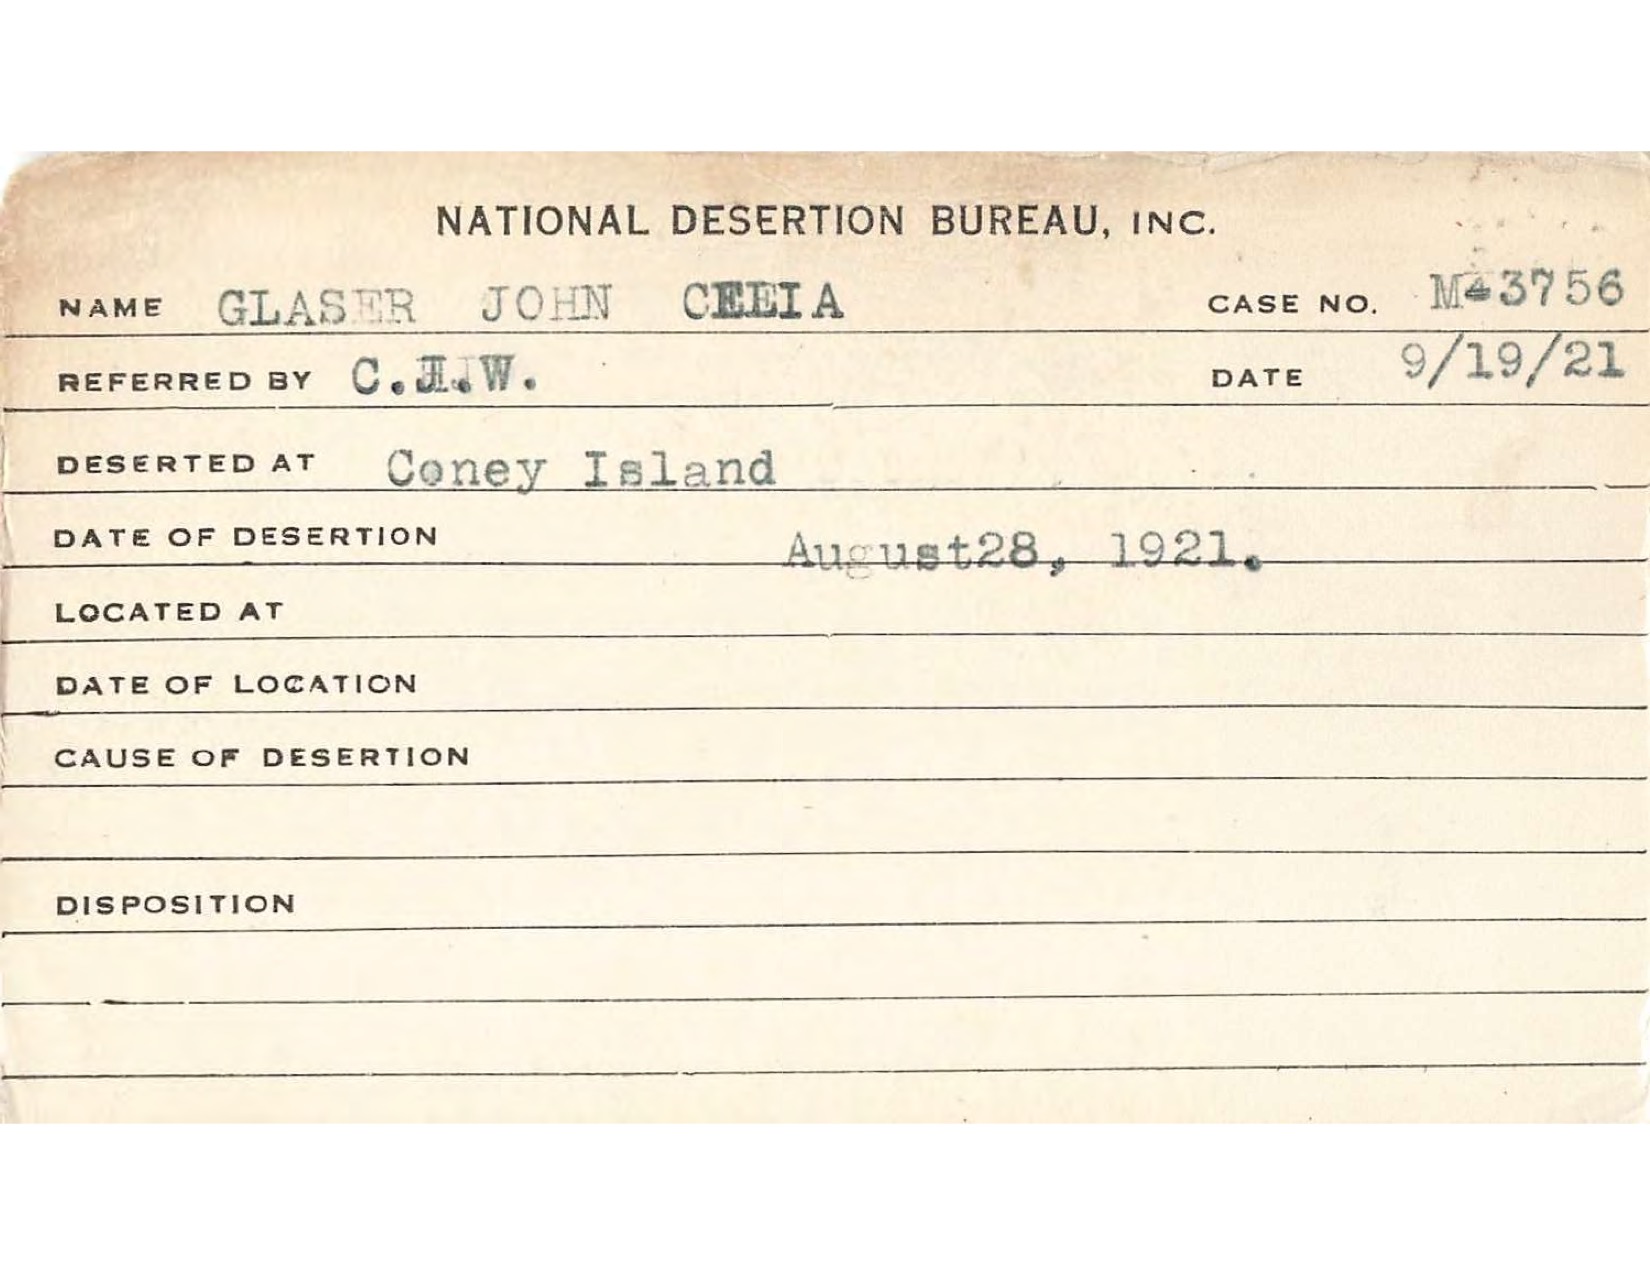 NATIONAL DESERTION BUREAU, INC.
NAME GLASER JOHN CELIA CASE NO. M-3756
REFERRED BY DATE 9/19/21
DESERTED AT Coney Island
DATE OF DESERTION August28, 1921.
LOCATED AT
DATE OF LOCATION
CAUSE OF DESERTION
DISPOSITION